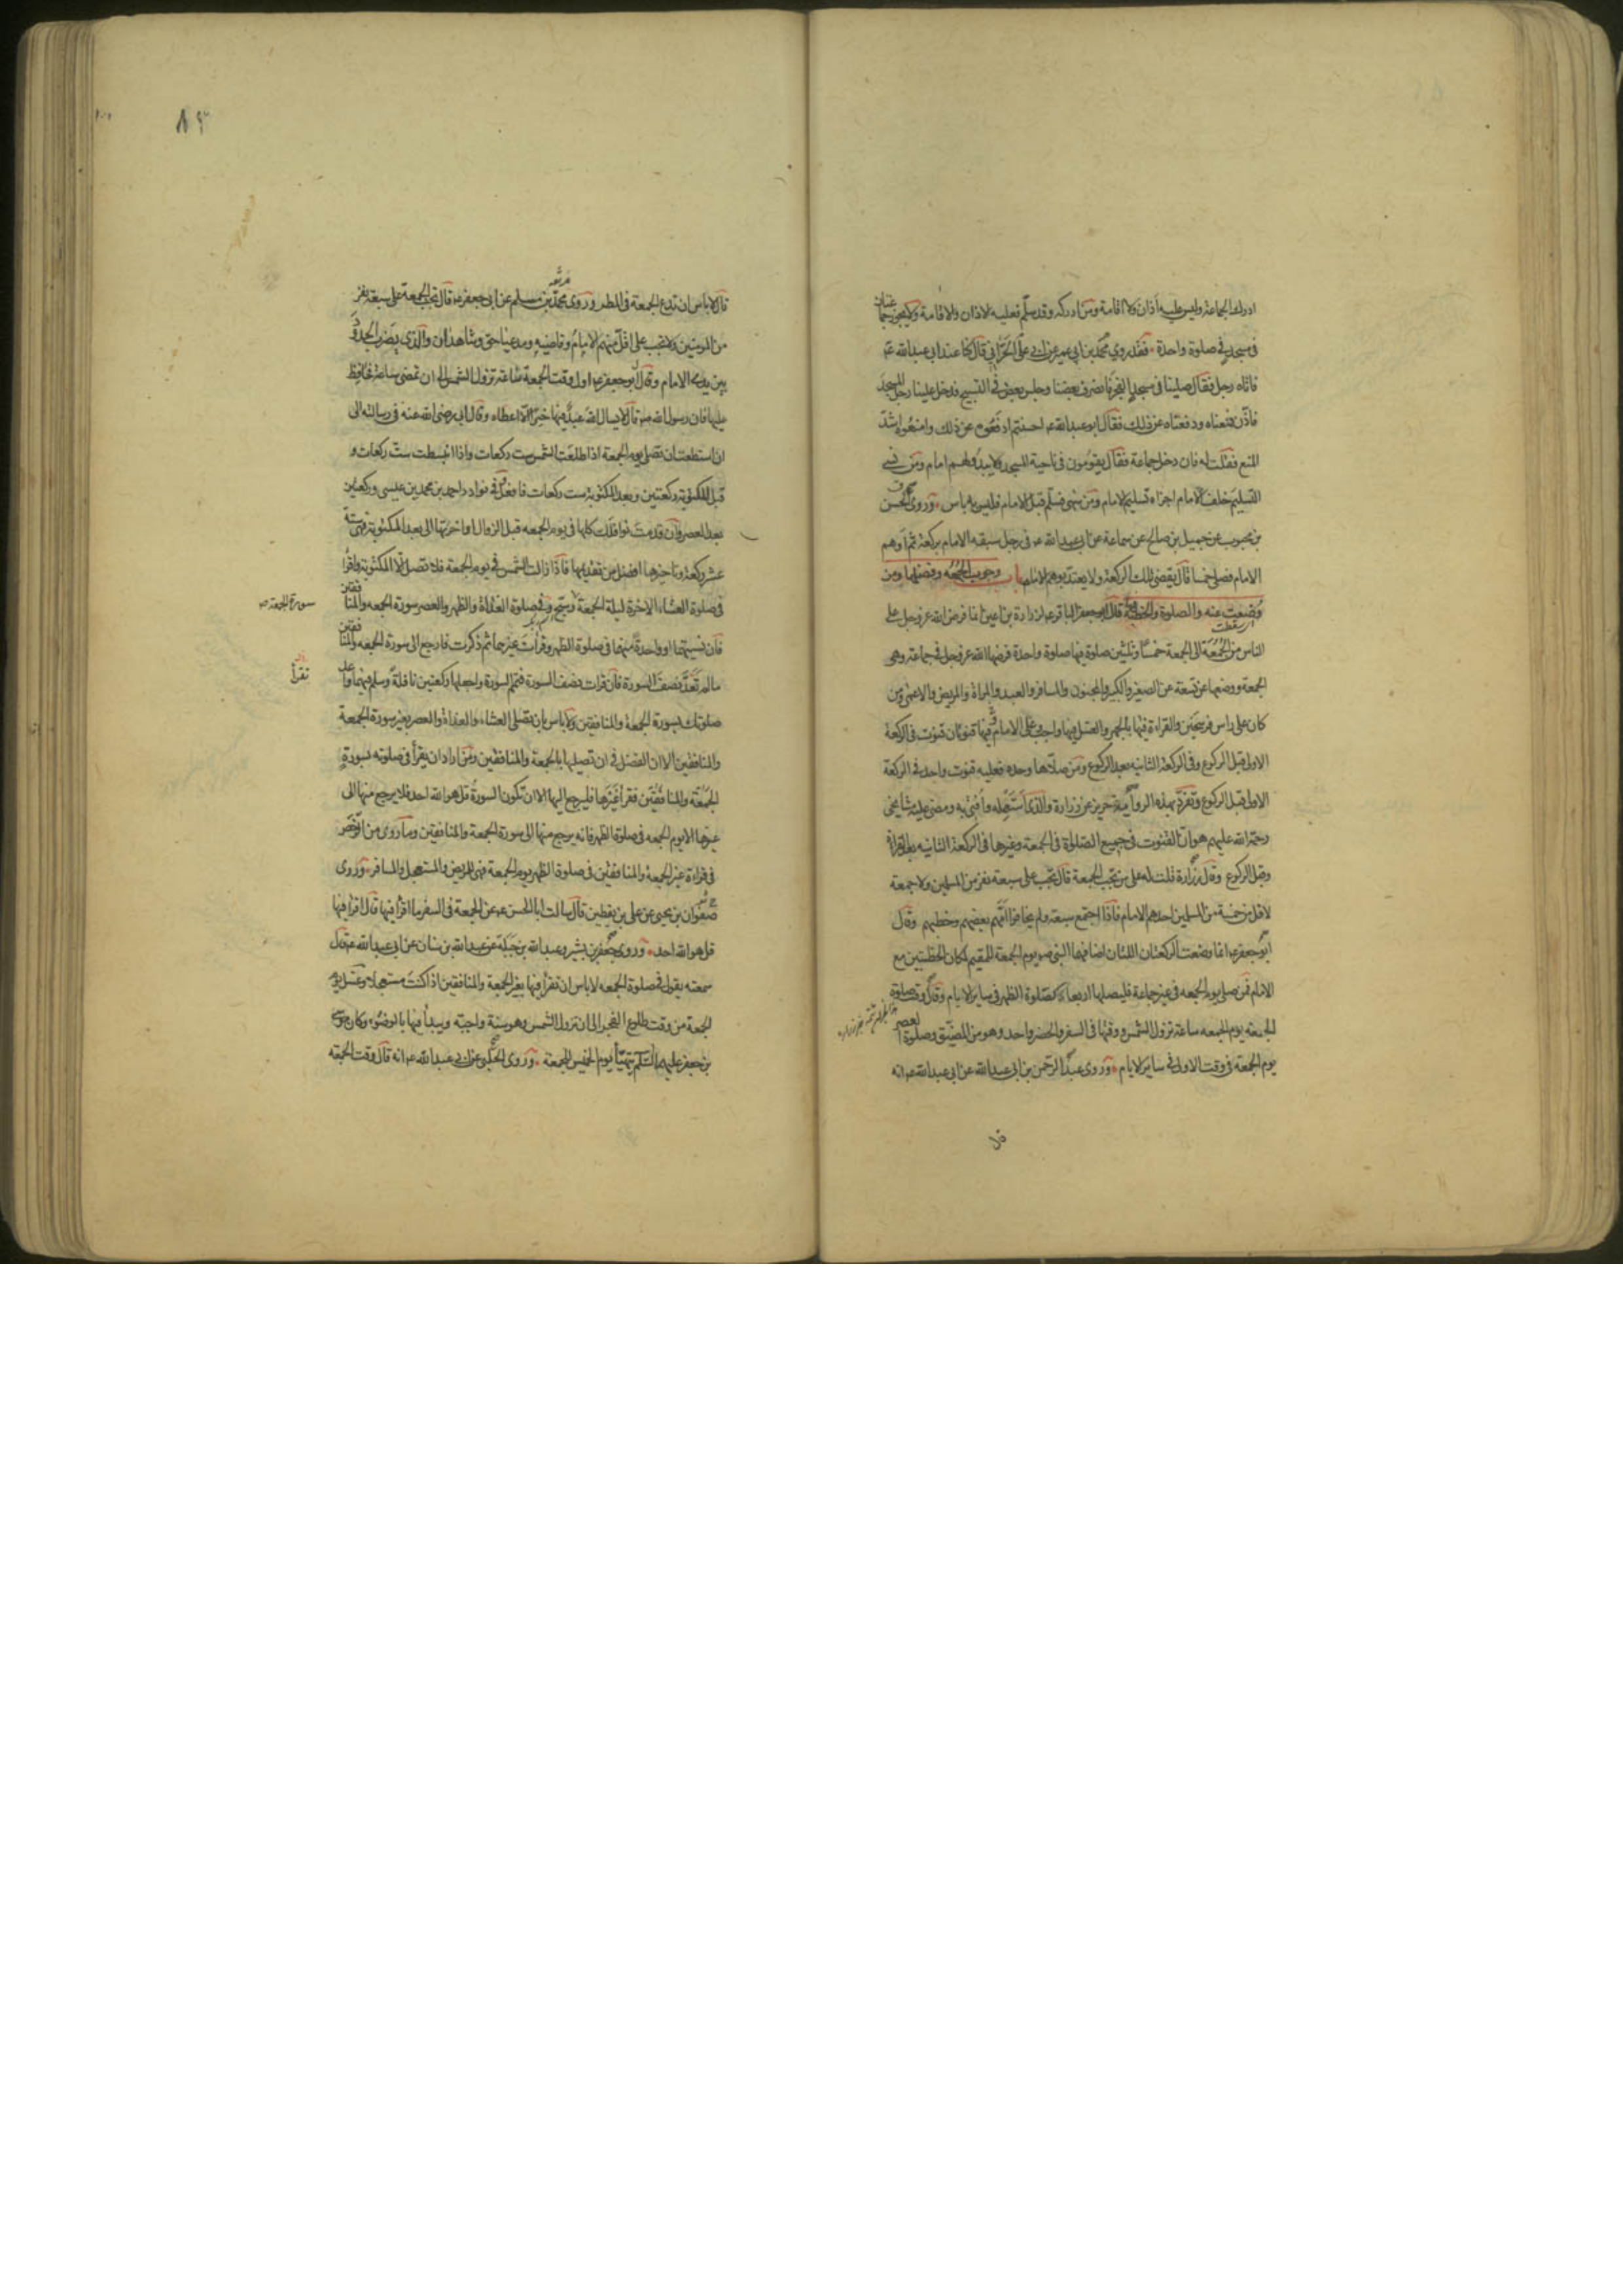 ادرك الجماعة وليس عليه أذان ولا اقامة ومن ادركه وقد سلّم فعليه الاذان والاقامة ولا يجوز جماعتان
في مسجد في صلوة واحدة فقد روي محمد بن ابي عمير عن ابي علي الحرّاني قال كنا عند ابي عبد الله عه
فاتاه رجل فقال صلينا في مسجد الفجر فانصرف بعضنا وجلس بعض في التسبيح فدخل علينا رجل المسجد
فاذّن فمنعناه ودفعناه عن ذلك فقال ابو عبد الله عه احسنتم ادفعوه عن ذلك وامنعوه اشدّ
المنع فقلت له فان دخل جماعة فقال يقومون في ناحية المسجد ولا يبدو لهم امام ومن نسي
التسليم خلف الامام اجزاه تسليم الامام ومن سهى فسلّم قبل الامام فليس به باس وروى الحسن
بن محبوب عن جميل بن صالح عن سماعة عن ابي عبد الله عه في رجل سبقه الامام بركعة ثم اوهم
الامام فصلى خمسا قال يقضي تلك الركعة ولا يعتدّ بوهم الامام باب وجوب الجمعه وفضلها ومن
وُضِعت عنه والصلوة والخطبة قال ابو جعفر الباقر عه لزرارة بن اعين انما فرض الله عز وجل على
الناس من الجُمُعَة الى الجمعة خمسًا وثلثين صلوة فيها صلوة واحدة فرضها الله عز وجل في جماعة وهي
الجمعة ووضعها عن تسعة عن الصغير والكبير والمجنون والمسافر والعبد والمراة والمريض والاعمى ومن
كان على راس فرسخين والقراءة فيها بالجهر والغسل فيها واجب وعلى الامام فيها قنوتان قنوت في الركعة
الاولى قبل الركوع وفي الركعة الثانيه بعد الركوع ومن صلاها وحده فعليه قنوت واحد في الركعة
الاولى قبل الركوع وتفرّد بهذه الرواية حريز عن زرارة والذي استعمله وأفتي به ومضى عليه مشايخي
رحمة الله عليهم هو ان القنوت في جميع الصلوة في الجمعة وغيرها في الركعة الثانيه بعد القراءة
وقبل الركوع وقال زرارة قلت له على من تجب الجمعة قال تجب على سبعة نفر من المسلمين ولا جمعة
لاقل من خمسة من المسلمين احدهم الامام فاذا اجتمع سبعة ولم يخافوا امّهم بعضهم وخطبهم وقال
ابو جعفر عه انما وضعت الركعتان اللتان اضافهما النبي ص يوم الجمعة للمقيم لمكان الخطبتين مع
الامام فمن صلى يوم الجمعه في غير جماعة فليصلها اربعا كصلوة الظهر في ساير الايام وقال وقت صلوة
الجمعة يوم الجمعه ساعة تزول الشمس ووقتها في السفر والحضر واحد وهو من المضيّق وصلوة العصر
يوم الجمعة في وقت الاولى في ساير الايام وروى عبد الرحمن بن ابي عبد الله عن ابي عبد الله عه انه
٨٣
قال لا باس ان تدع الجمعة في المطر وروى محمد بن مسلم عن ابي جعفر عه قال تجب الجمعة على سبعة نفر
من المومنين ولا تجب على اقل منهم الامام وقاضيه ومدعيا حق وشاهدان والذي يضرب الحدود
بين يدي الامام وقال ابو جعفر عه اول وقت الجمعة ساعة تزول الشمس الى ان تمضي ساعة فحافظ
عليها فان رسول الله ص قال لا يسال الله عبد فيها خيرًا الا اعطاه وقال ابي رضي الله عنه في رسالته الى
ان استطعت ان تصلي يوم الجمعة اذا طلعت الشمس ست ركعات واذا انبسطت ست ركعات و
قبل المكتوبة ركعتين وبعد المكتوبة ست ركعات فافعل وفي نوادر احمد بن محمد بن عيسى وركعتين
بعد العصر وان قدمت نوافلك كلها في يوم الجمعه قبل الزوال او اخرتها الى بعد المكتوبة فهي ستة
عشر ركعة وتاخيرها افضل من تقديمها فاذا زالت الشمس في يوم الجمعة فلا تصل الا المكتوبة واقرا
في صلوة العشاء الاخرة ليلة الجمعة وسبح وفي صلوة الغداة والظهر والعصر سورة الجمعه والمنافقين
سورة الجمعة ص
فان نسيتهما او واحدة منهما في صلوة الظهر وقرات غيرهما ثم ذكرت فارجع الى سورة الجمعه والمنافقين
ما لم تَعَدّ نصف السورة فان قرات نصف السورة فتمم السورة واجعلها ركعتين نافلةً وسلم فيهما واعد
تقرأ
صلوتك بسورة الجمعة والمنافقين ولا باس بان تصلي العشاء والغداة والعصر بغير سورة الجمعة
والمنافقين الا ان الفضل في ان تصليها بالجمعة والمنافقين ومن اراد ان يقرأ في صلوته بسورة
الجمعة والمنافقين فقرأ غيرها فليرجع اليها الا ان تكون السورة قل هو الله احد فلا يرجع منها الى
غيرها الا يوم الجمعه في صلوة الظهر فانه يرجع منها الى سورة الجمعة والمنافقين وما روى من الرخص
في قراءة غير الجمعة والمنافقين في صلوة الظهر يوم الجمعة فهي للمريض والمستعجل والمسافر وروى
صفوان بن يحيى عن علي بن يقطين قال سالت ابا الحسن عه عن الجمعة في السفر ما اقرأ فيها قال اقرا فيها
قل هو الله احد وروى جعفر بن بشير وعبد الله بن جبلة عن عبد الله بن سنان عن ابي عبد الله عه قال
سمعته يقول في صلوة الجمعه لا باس ان تقرأ فيها بغير الجمعة والمنافقين اذا كنت مستعجلا وغسل يوم
الجمعة من وقت طلوع الفجر الى ان تزول الشمس وهو سنة واجبة ويبدأ فيها بالوضوء وكان موسى
بن جعفر عليهما السلم يتهيّأ يوم الخميس للجمعة وروى الحلبي عن ابي عبد الله عه انه قال وقت الجمعة